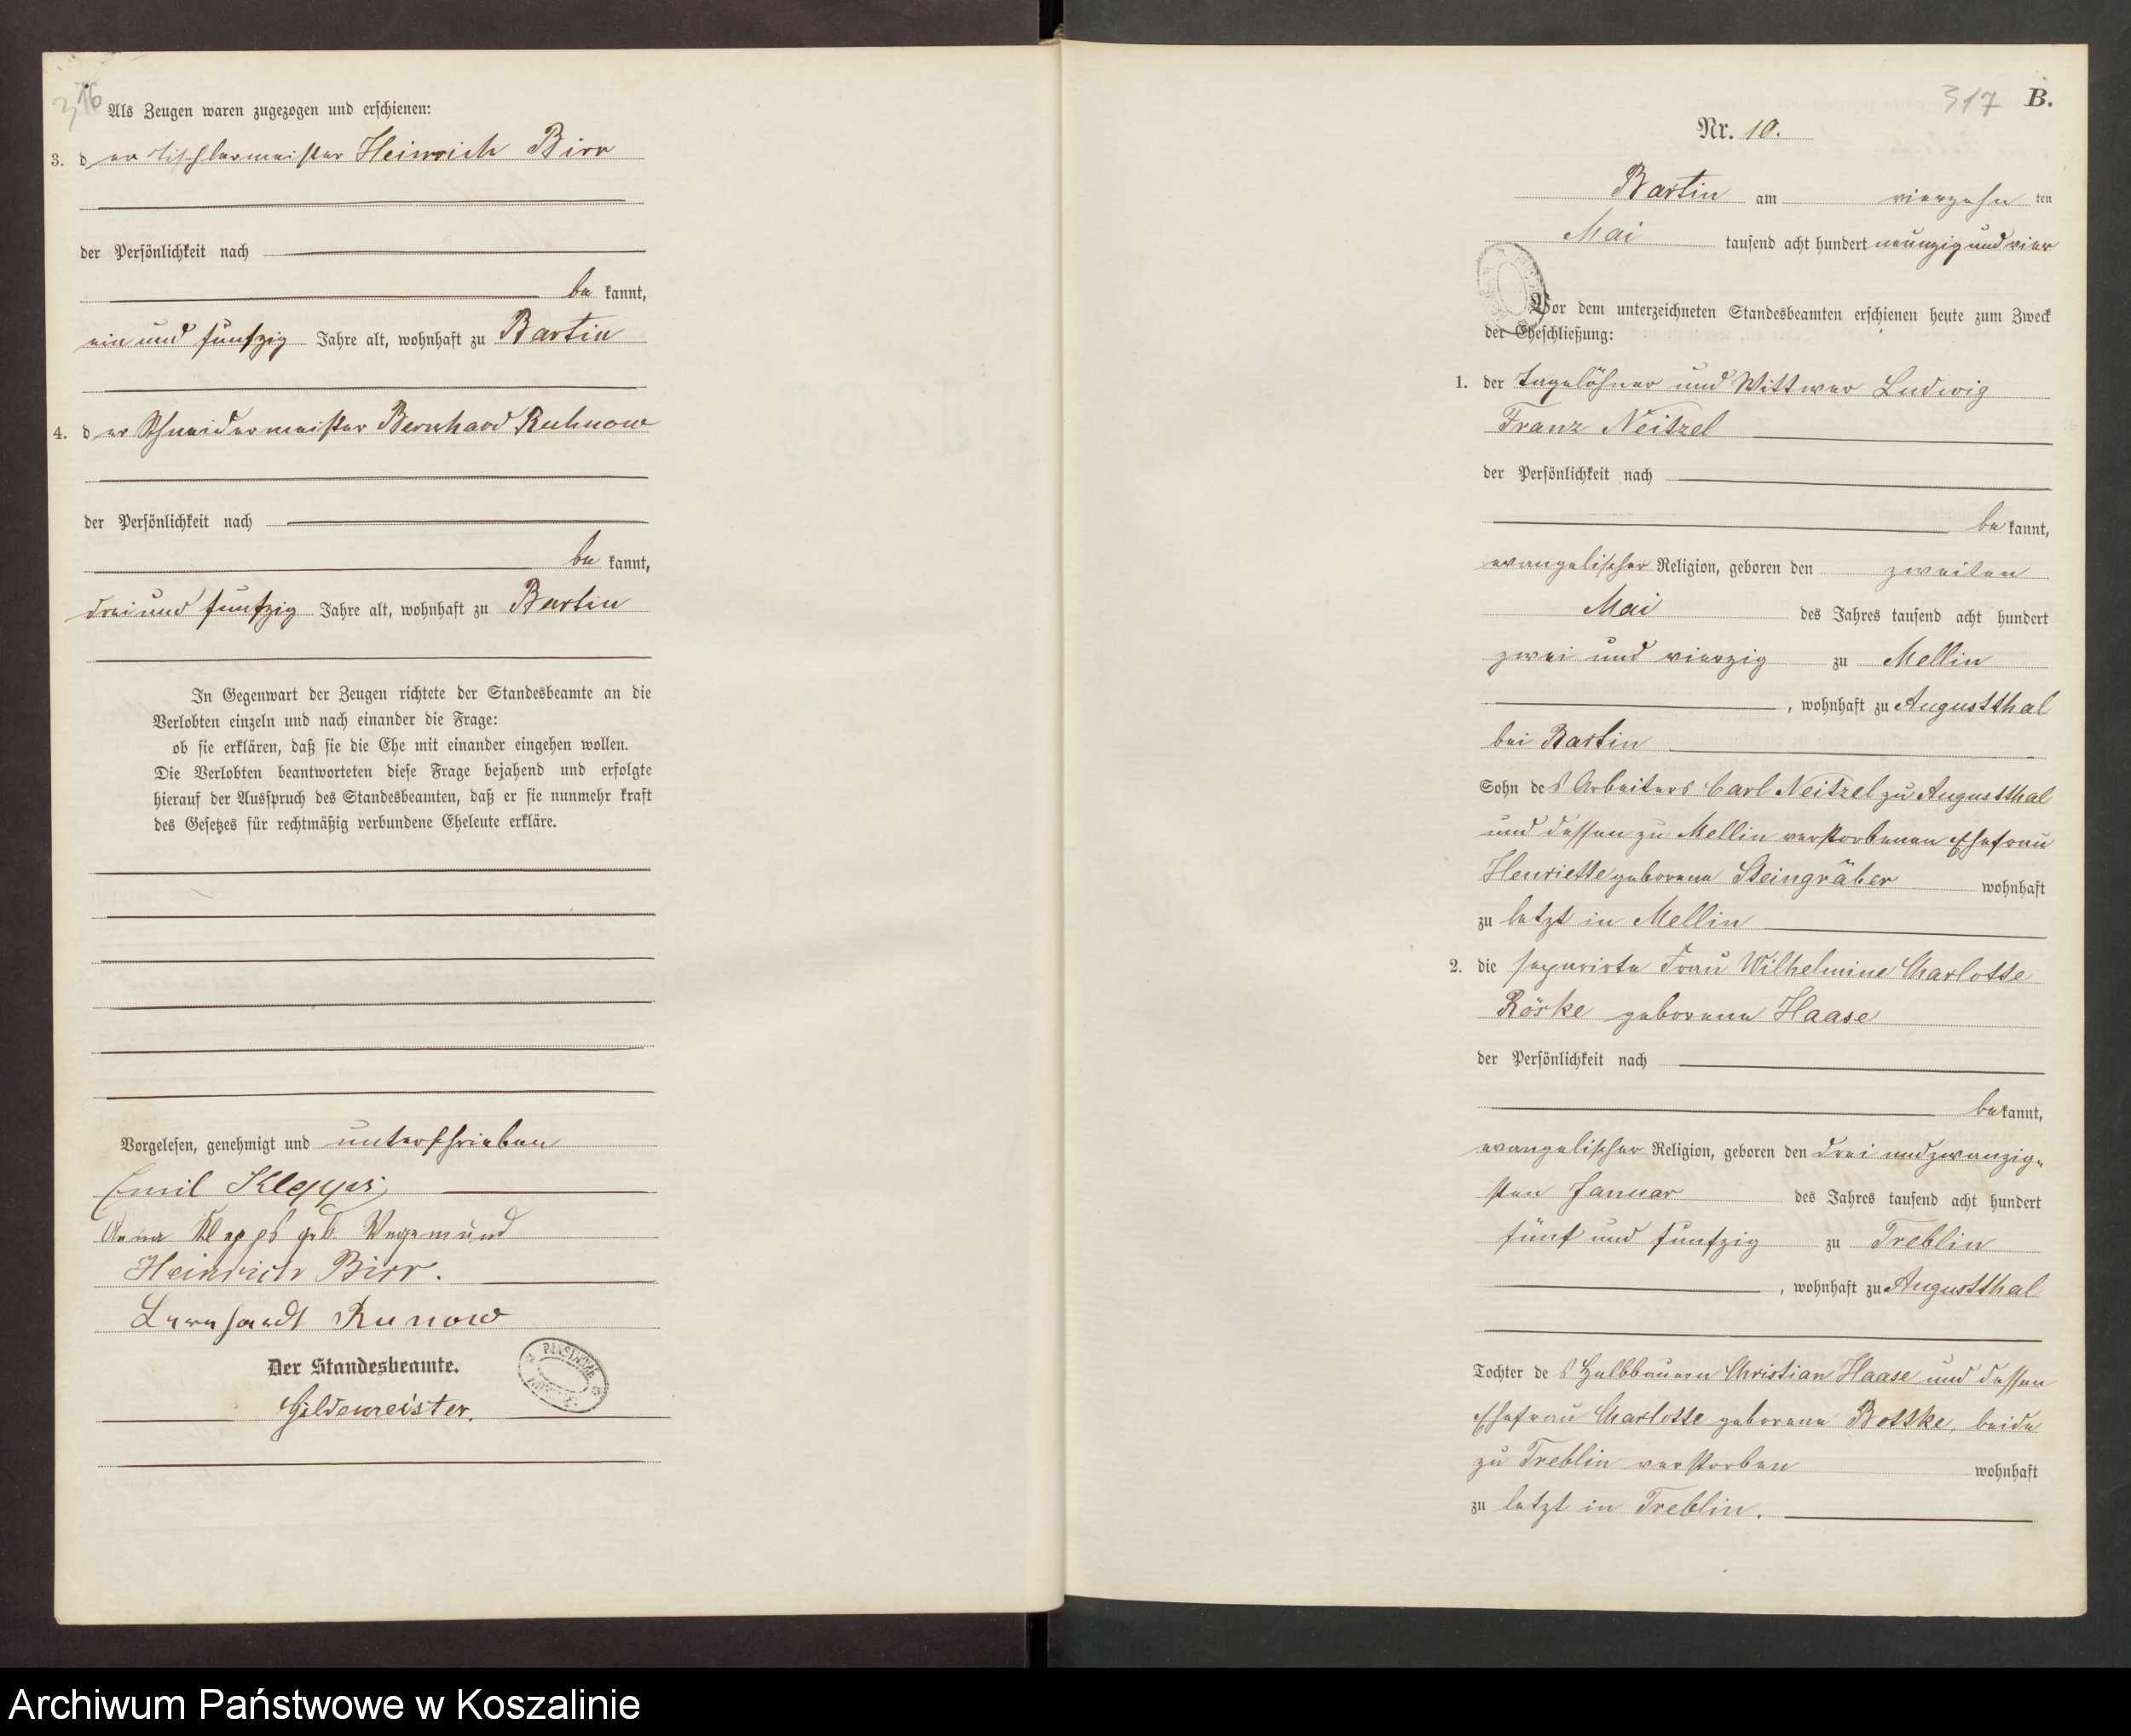 316
Als Zeugen waren zugezogen und erschienen:
3. der Tischlermeister Heinrich Birr
der Persönlichkeit nach
be kannt,
ein und fünfzig Jahre alt, wohnhaft zu Bartin
4. der Schneidermeister Bernhard Ruhnow
der Persönlichkeit nach
be kannt,
drei und fünfzig Jahre alt, wohnhaft zu Bartin
In Gegenwart der Zeugen richtete der Standesbeamte an die
Verlobten einzeln und nach einander die Frage:
ob sie erklären, daß sie die Ehe mit einander eingehen wollen.
Die Verlobten beantworteten diese Frage bejahend und erfolgte
hierauf der Ausspruch des Standesbeamten, daß er sie nunmehr kraft
des Gesetzes für rechtmäßig verbundene Eheleute erkläre.
Vorgelesen, genehmigt und unterschrieben
Emil
Anna geb. Wegemund
Heinrich Birr.
Bernhardt Runow
Der Standesbeamte.
Gildemeister.
317 B.
Nr. 10.
Bartin am vierzehn ten
Mai tausend acht hundert neunzig und vier
Vor dem unterzeichneten Standesbeamten erschienen heute zum Zweck
der Eheschließung:
1. der Tagelöhner und Wittwer Ludwig
Franz Neitzel
der Persönlichkeit nach
be kannt,
evangelischer Religion, geboren den zweiten
Mai des Jahres tausend acht hundert
zwei und vierzig zu Mellin
, wohnhaft zu Augustthal
bei Bartin
Sohn des Arbeiters Carl Neitzel zu Augustthal
und dessen zu Mellin verstorbenen Ehefrau
Henriette geborene Steingräber wohnhaft
zu letzt in Mellin
2. die separirte Frau Wilhelmine Charlotte
Röske geborene Haase
der Persönlichkeit nach
be kannt,
evangelischer Religion, geboren den drei und zwanzig-
sten Januar des Jahres tausend acht hundert
fünf und fünfzig zu Treblin
, wohnhaft zu Augustthal
Tochter des Halbbauern Christian Haase und dessen
Ehefrau Charlotte geborene Bottke, beide
zu Treblin verstorben wohnhaft
zu letzt in Treblin.
Archiwum Państwowe w Koszalinie